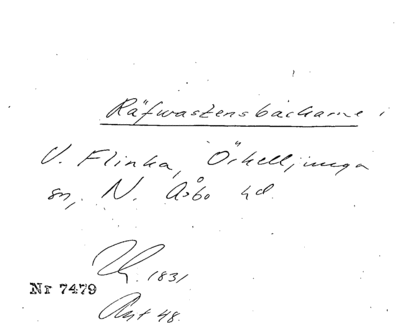 Räfwastensbäckarne i
V. Flinka, Örkelljunga
sn, N. Åsbo hd
1831
Nr 7479
Akt 48.